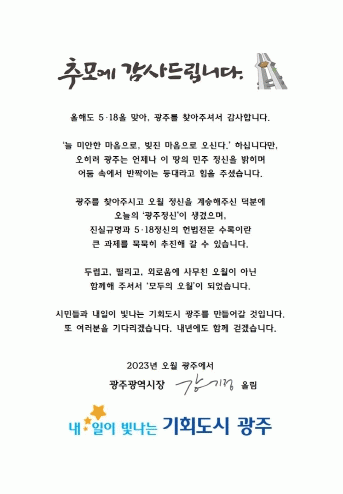 추모에 감사드립니다.
올해도 5·18을 맞아, 광주를 찾아주셔서 감사합니다.
'늘 미안한 마음으로, 빚진 마음으로 오신다.' 하십니다만,
오히려 광주는 언제나 이 땅의 민주 정신을 밝히며
어둠 속에서 반짝이는 등대라고 힘을 주셨습니다.
광주를 찾아주시고 오월 정신을 계승해주신 덕분에
오늘의 '광주정신'이 생겼으며,
진실규명과 5·18정신의 헌법전문 수록이란
큰 과제를 묵묵히 추진해 갈 수 있습니다.
두렵고, 떨리고, 외로움에 사무친 오월이 아닌
함께해 주셔서 '모두의 오월'이 되었습니다.
시민들과 내일이 빛나는 기회도시 광주를 만들어갈 것입니다.
또 여러분을 기다리겠습니다. 내년에도 함께 걷겠습니다.
2023년 오월 광주에서
광주광역시장 강기정 올림
내☆일이 빛나는 기회도시 광주